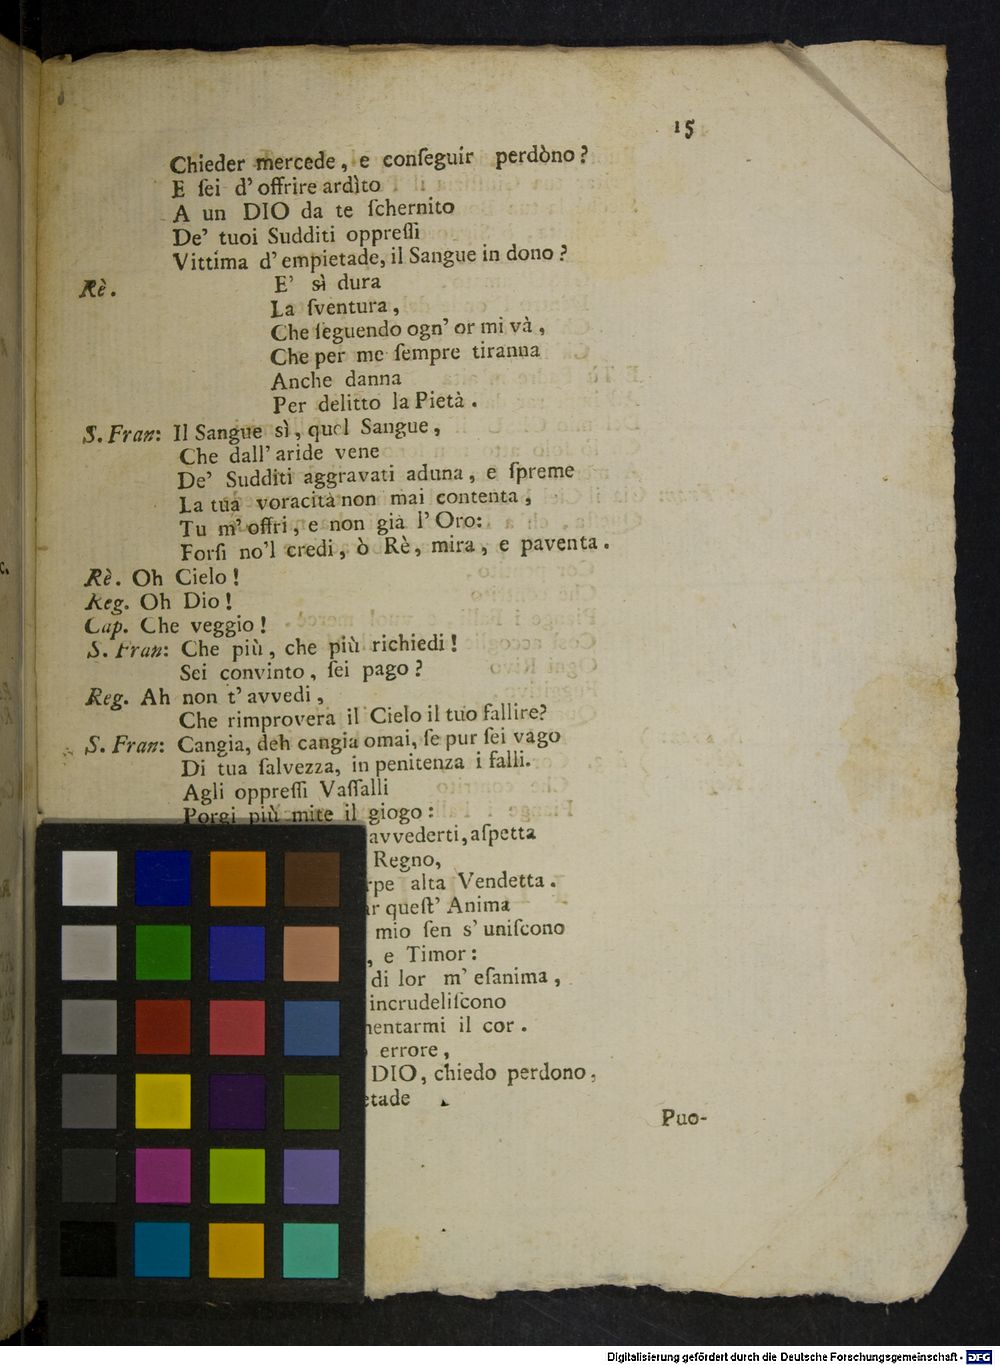 15
Chieder mercede, e conſeguir perdòno?
E ſei d' offrire ardìto
A un DIO da te ſchernito
De' tuoi Sudditi oppreſſi
Vittima d' empietade, il Sangue in dono?
Rè. E' sì dura
La ſventura,
Che ſeguendo ogn' or mi và,
Che per me ſempre tiranna
Anche danna
Per delitto la Pietà.
S. Fran: Il Sangue sì, quel Sangue,
Che dall' aride vene
De' Sudditi aggravati aduna, e ſpreme
La tua voracità non mai contenta,
Tu m' offri, e non già l' Oro:
Forſi no'l credi, ò Rè, mira, e paventa.
Rè. Oh Cielo!
Reg. Oh Dio!
Cap. Che veggio!
S. Fran: Che più, che più richiedi!
Sei convinto, ſei pago?
Reg. Ah non t' avvedi,
Che rimprovera il Cielo il tuo fallire?
S. Fran: Cangia, deh cangia omai, ſe pur ſei vago
Di tua ſalvezza, in penitenza i falli.
Agli oppreſſi Vaſſalli
Porgi più mite il giogo:
avvederti, aſpetta
Regno,
rpe alta Vendetta.
ar queſt' Anima
mio ſen s' uniſcono
, e Timor:
di lor m' eſanima,
incrudeliſcono
mentarmi il cor.
errore,
DIO, chiedo perdono,
etade
Puo-
Digitalisierung gefördert durch die Deutsche Forschungsgemeinschaft - DFG